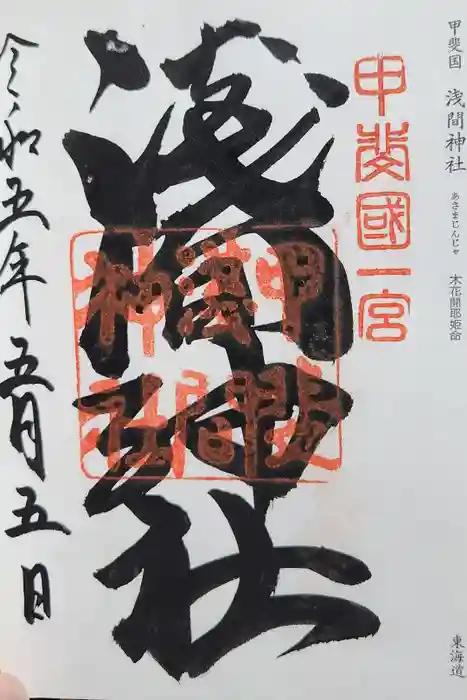 甲斐国 浅間神社 あさまじんじゃ 木花開耶姫命
東海道
甲斐國一宮
淺間神社
甲斐
淺間
神社
令和五年五月五日